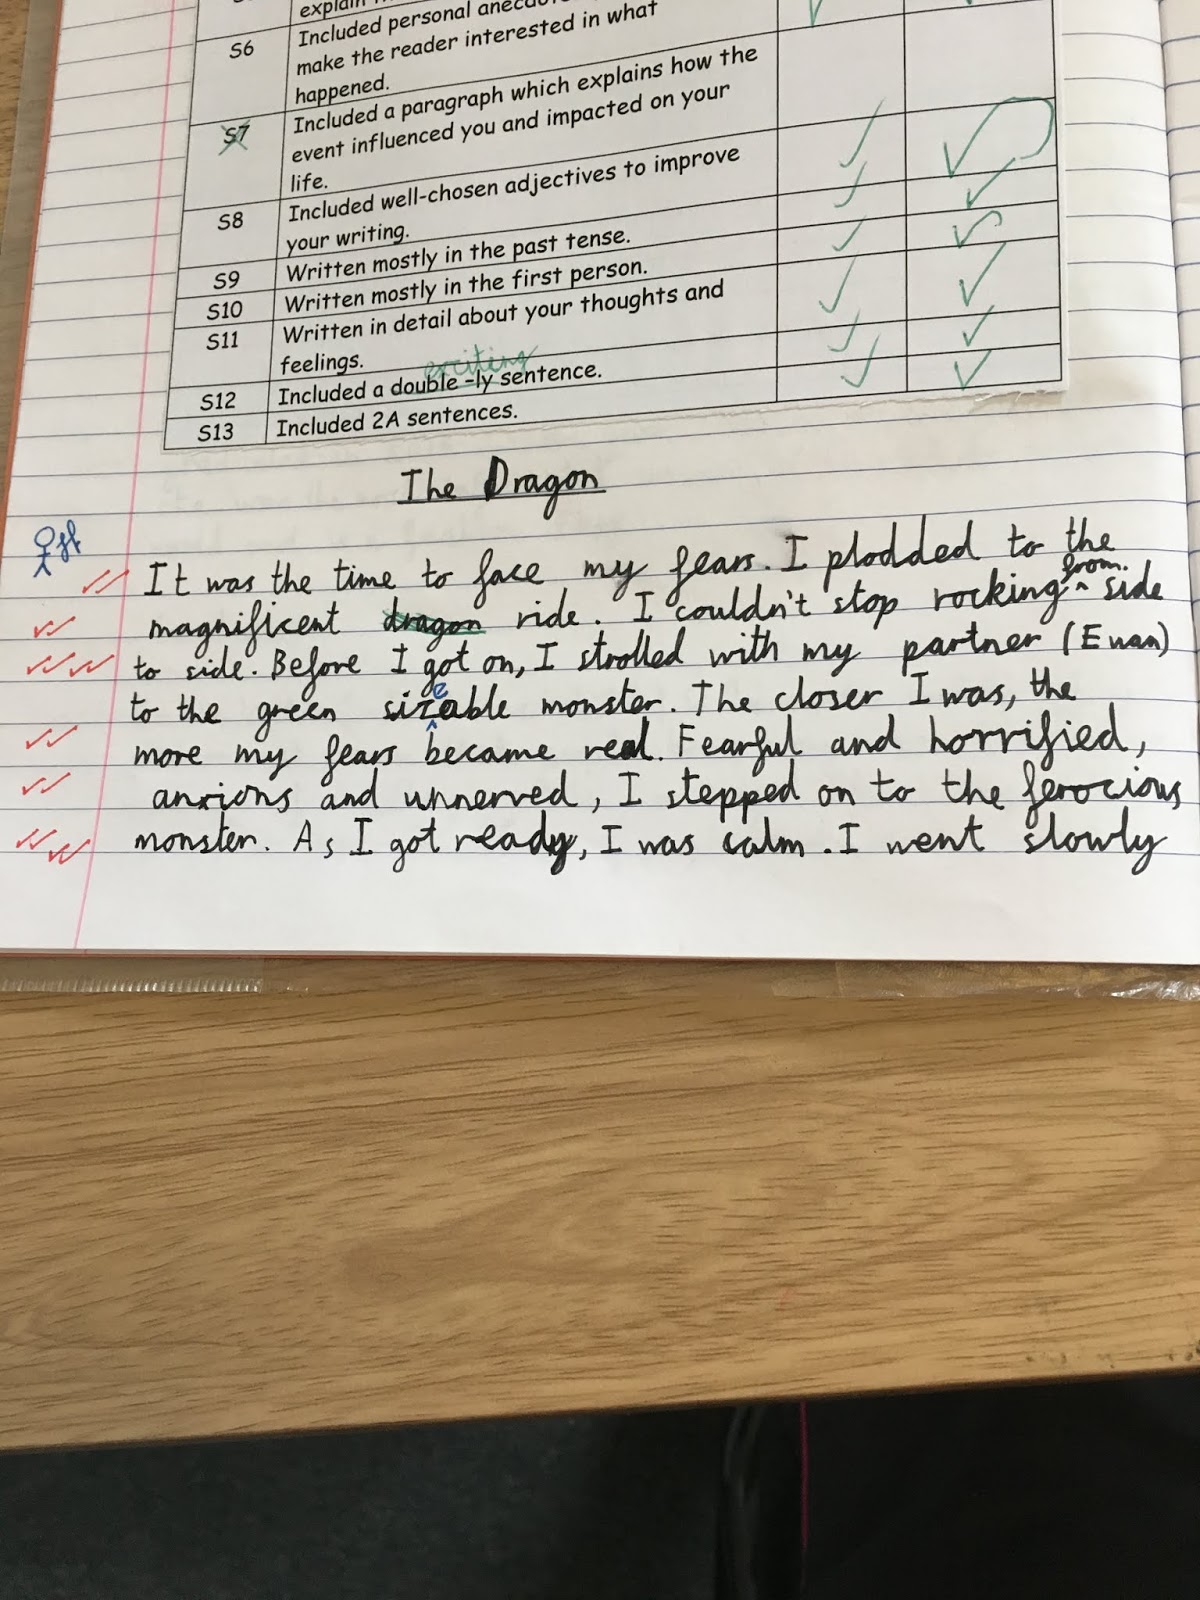 explain
S6 Included personal anecdotes
make the reader interested in what
happened.
S7 Included a paragraph which explains how the
event influenced you and impacted on your
life.
S8 Included well-chosen adjectives to improve
your writing.
S9 Written mostly in the past tense.
S10 Written mostly in the first person.
S11 Written in detail about your thoughts and
feelings.
exciting
S12 Included a double -ly sentence.
S13 Included 2A sentences.
The Dragon
It was the time to face my fears. I plodded to the
magnificent dragon ride. I couldn't stop rocking from side
to side. Before I got on, I strolled with my partner (Ewan)
to the green sizeable monster. The closer I was, the
more my fears became real. Fearful and horrified,
anxions and unnerved, I stepped on to the ferocious
monster. As I got ready, I was calm. I went slowly